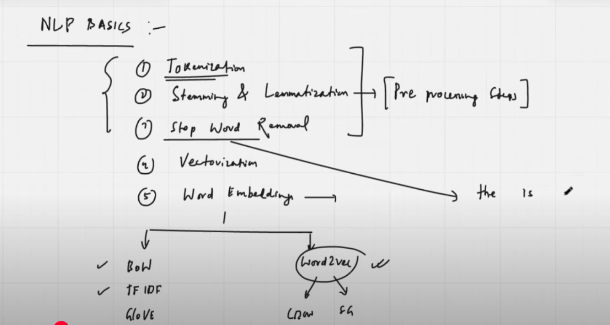 NLP BASICS :-
① Tokenization
② Stemming & Lemmatization → [Pre processing Steps]
③ Stop Word Removal
④ Vectorization
⑤ Word Embeddings → the is
BOW Word2vec
TFIDF CBOW SG
GloVE